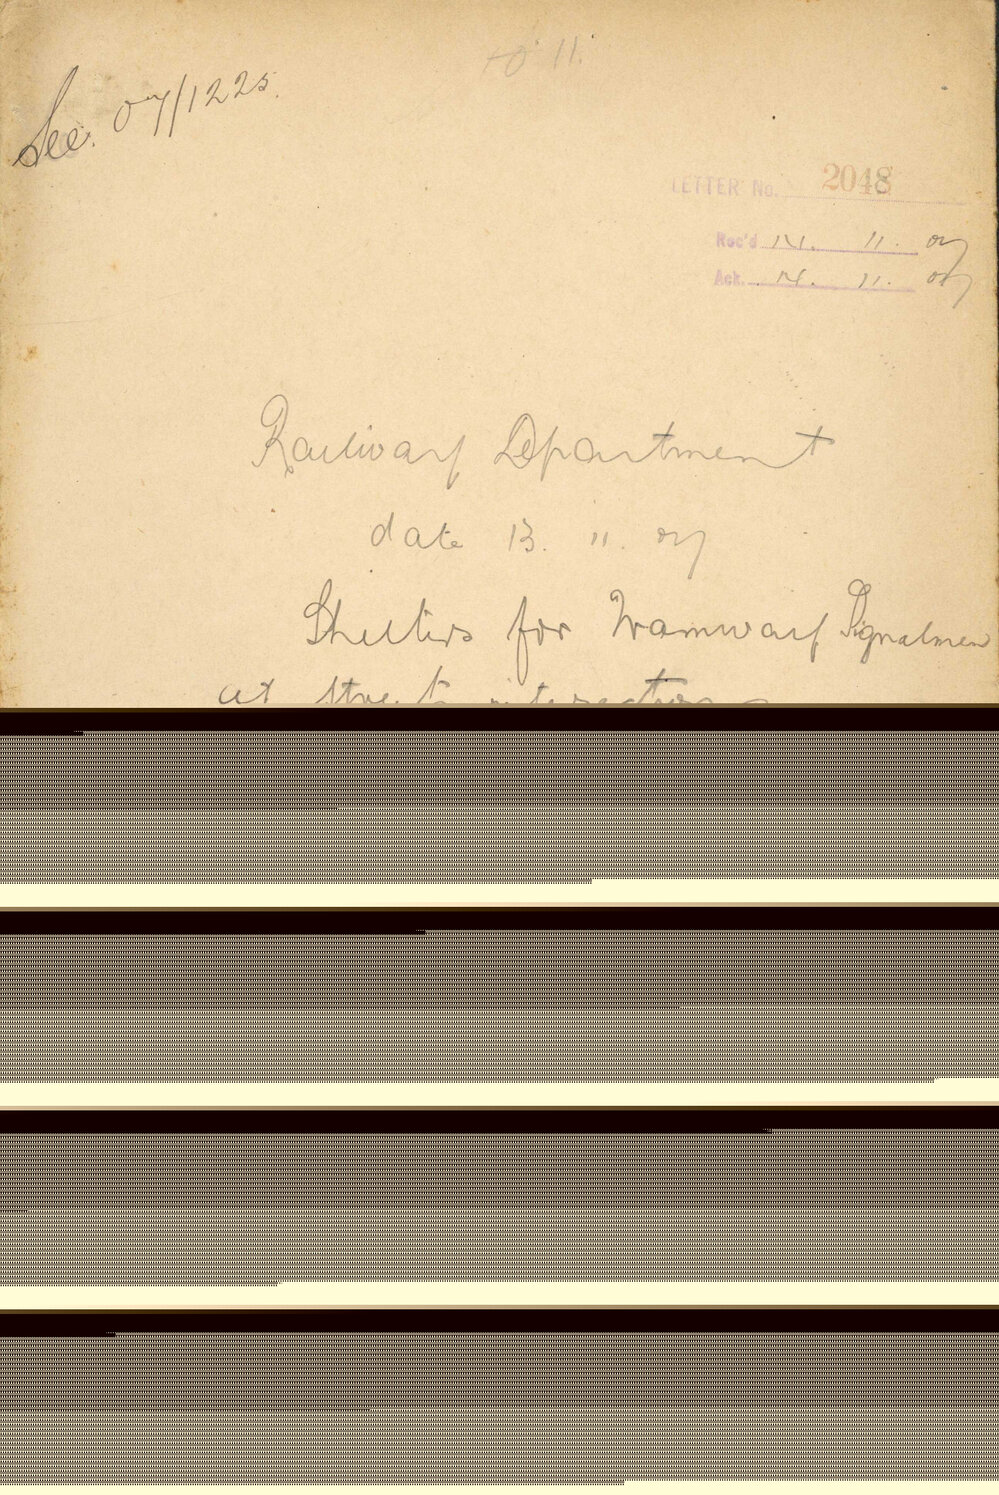 See. 07/1225.
LETTER No. 2048
Rec'd 14. 11. 07
Ack. 14. 11. 07
Railway Department
date 13. 11. 07
Shelters for Tramway Signalmen
at street